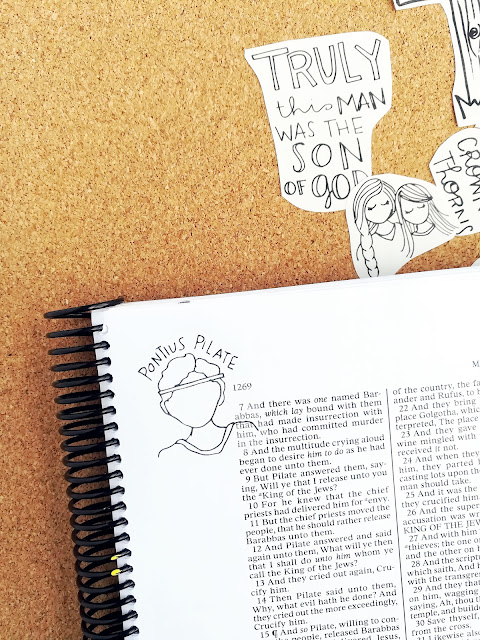 TRULY
this MAN
WAS THE
SON
OF GOD
CROWN
THORNS
PONTIUS PILATE
1269
7 And there was one named Bar-
abbas, which lay bound with them
that had made insurrection with
him, who had committed murder
in the insurrection.
8 And the multitude crying aloud
began to desire him to do as he had
ever done unto them.
9 But Pilate answered them, say-
ing, Will ye that I release unto you
the King of the Jews?
10 For he knew that the chief
priests had delivered him for envy.
11 But the chief priests moved the
people, that he should rather release
Barabbas unto them.
12 And Pilate answered and said
again unto them, What will ye then
that I shall do unto him whom ye
call the King of the Jews?
13 And they cried out again, Cru-
cify him.
14 Then Pilate said unto them,
Why, what evil hath he done? And
they cried out the more exceedingly,
Crucify him.
15 ¶ And so Pilate, willing to con-
people, released Barabbas
delivered Jesus,
M
of the country, the fa
ander and Rufus, to b
22 And they bring
place Golgotha, which
terpreted, The place
23 And they gave
wine mingled with
received it not.
24 And when they
him, they parted
casting lots upon the
man should take.
25 And it was the
they crucified him.
26 And the super
accusation was wr
KING OF THE JEW
27 And with him
thieves; the one o
and the other on h
28 And the script
which saith, And h
with the transgres
29 And they that
on him, wagging
saying, Ah, thou th
temple, and builde
30 Save thyself,
from the cross.
31 Likewise also